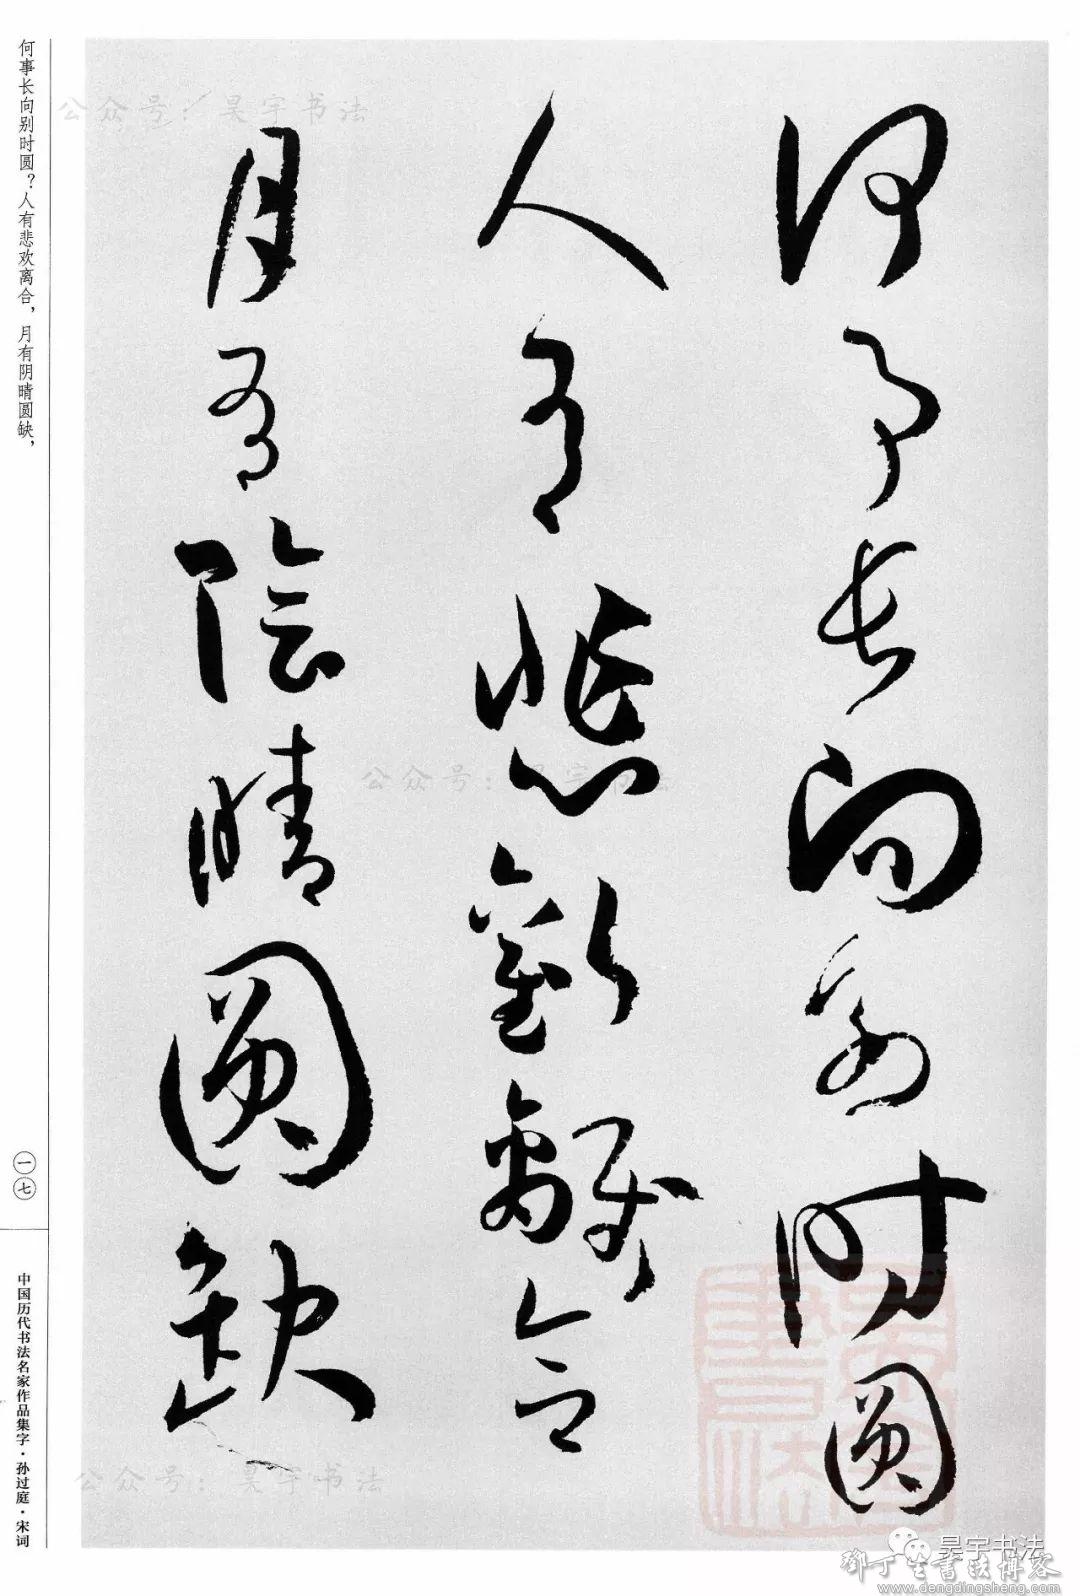 何事长向别时圆
人有悲歡離合
月有陰晴圆缺
何事长向别时圆？人有悲欢离合，月有阴晴圆缺，
一七
中国历代书法名家作品集字·孙过庭·宋词
公众号：昊宇书法
公众号：昊宇书法
公众号：昊宇书法
昊宇书法
鄧丁生書法博客
www.dengdingsheng.com